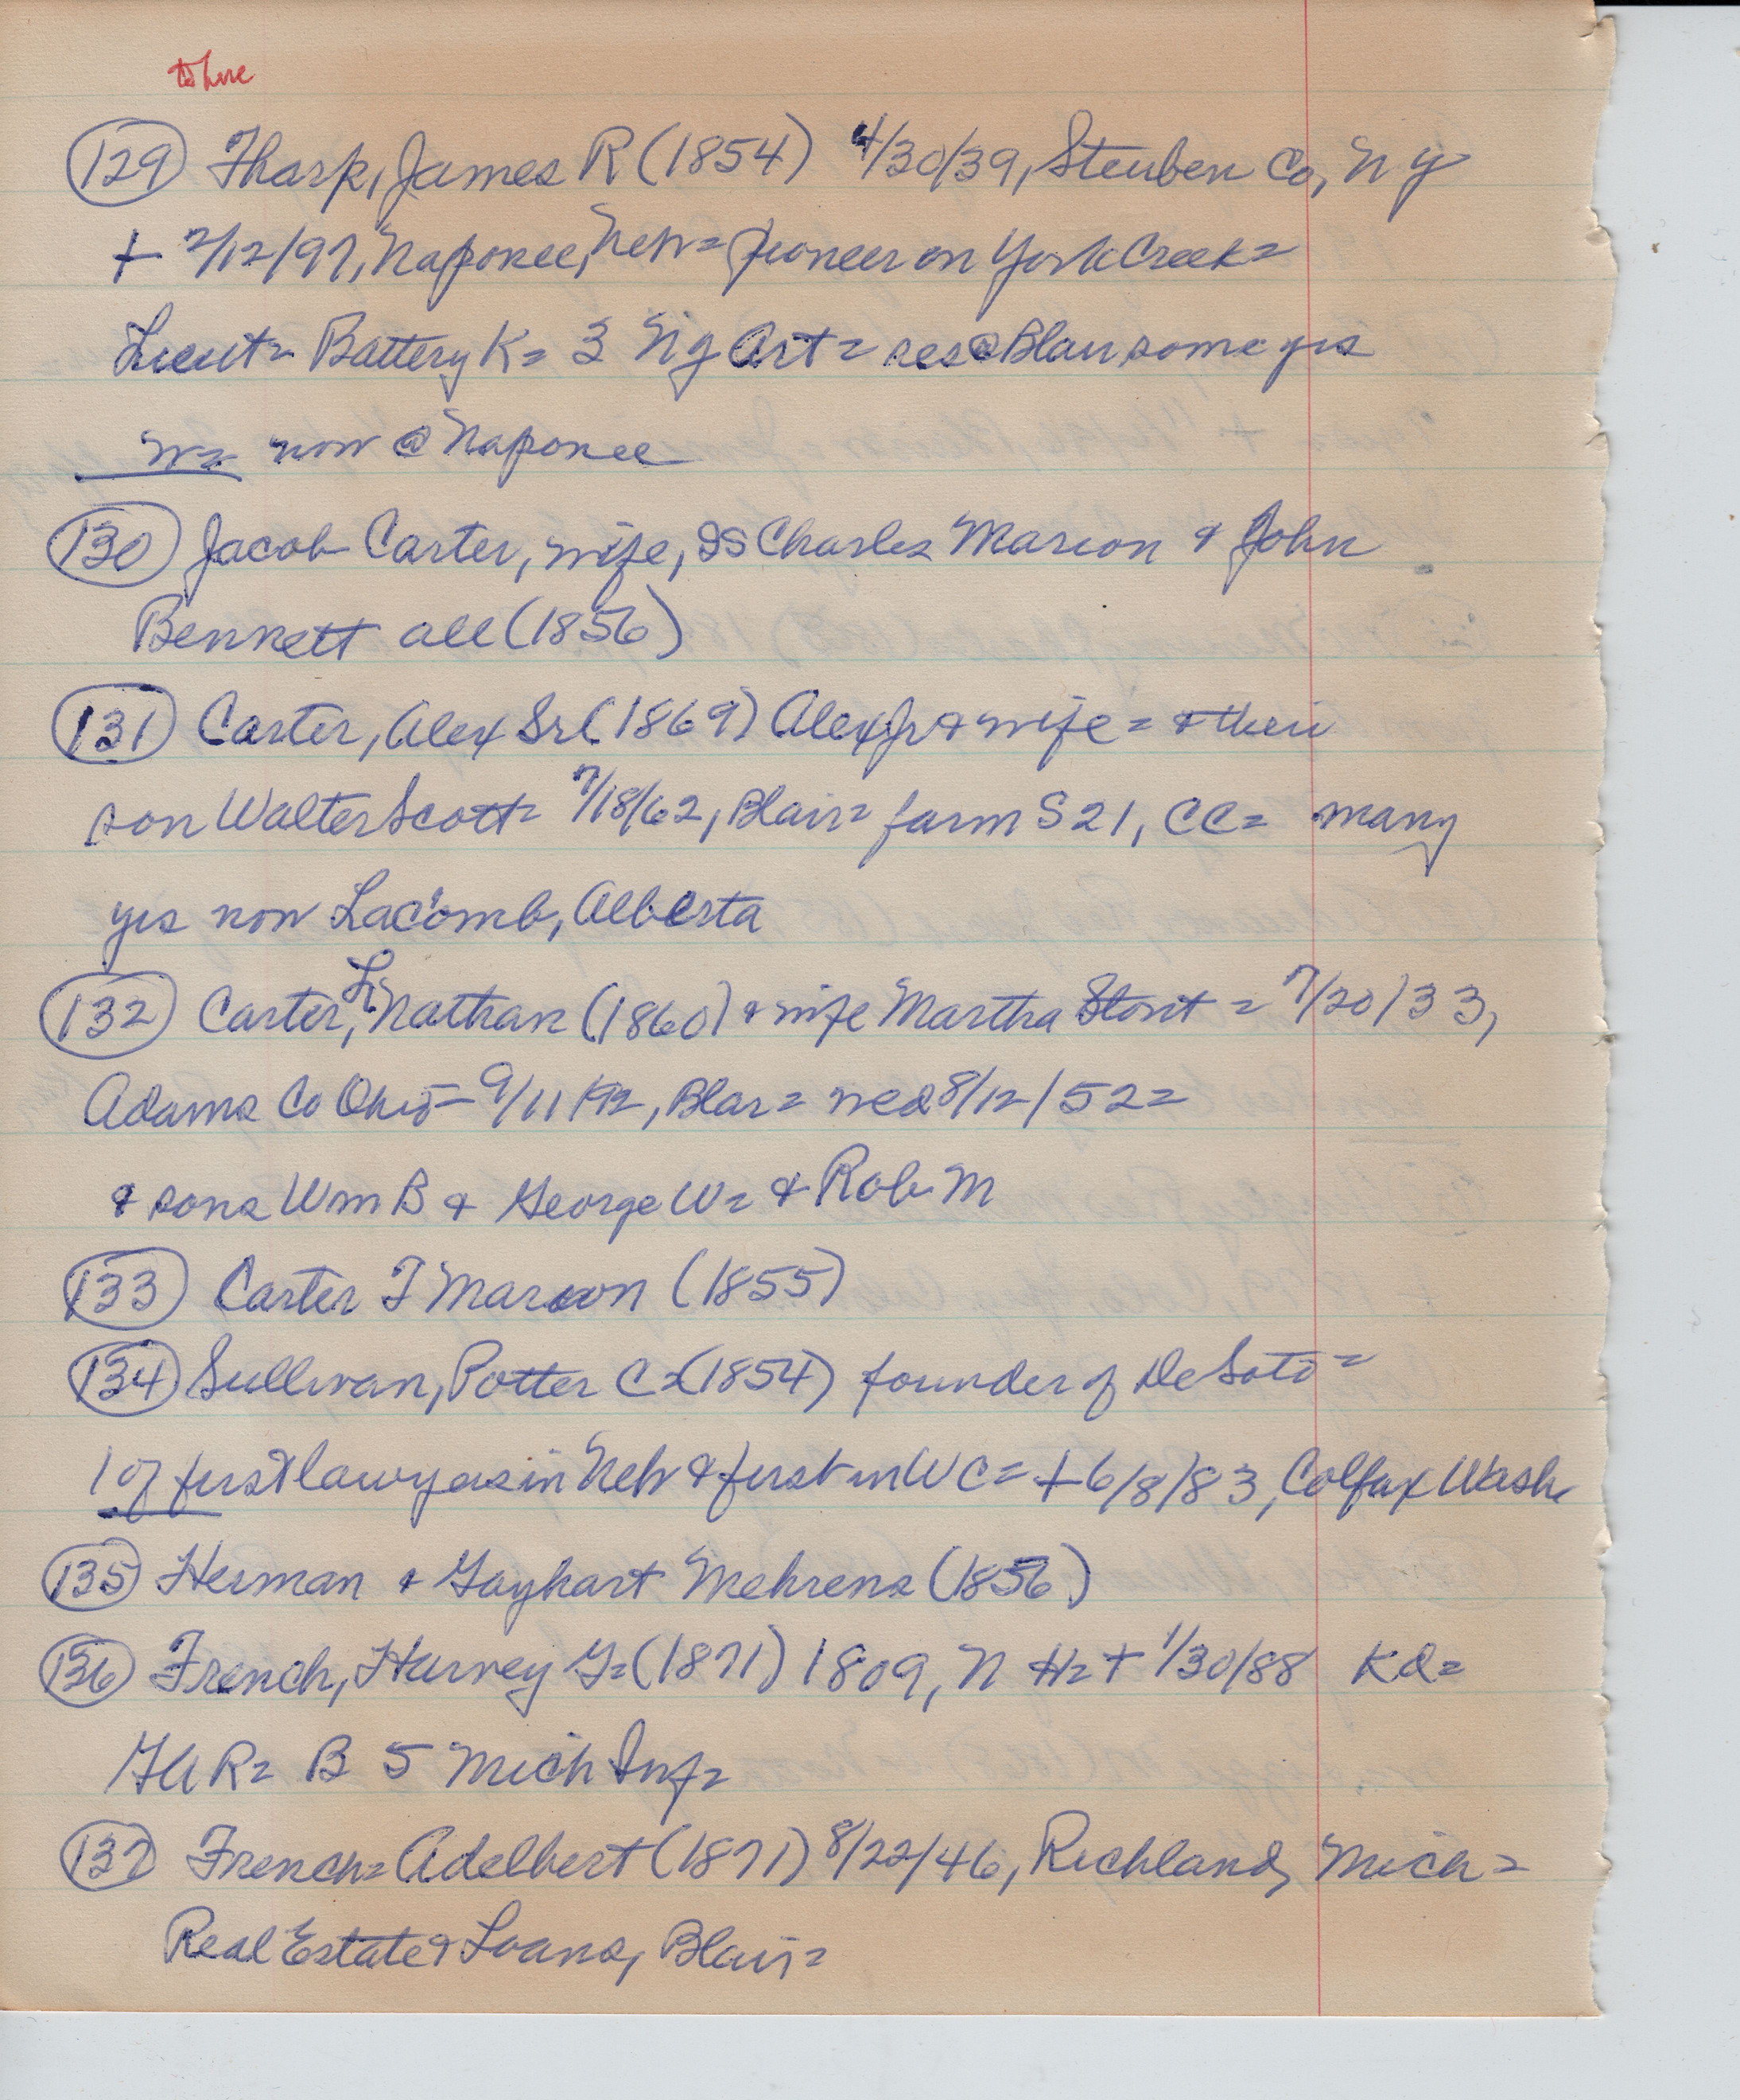 to here
(129) Tharp, James R (1854) 4/30/39, Steuben Co, N Y
+ 2/12/97, Naponee, Neb= pioneer on York Creek=
Lieut= Battery K= 3 N Y Art= res @ Blair some yrs
W= now @ Naponee
(130) Jacob Carter, wife, Charles Marion & John
Bennett all (1856)
(131) Carter, Alex Sr (1869) Alex Jr & wife= & their
son Walter Scott= 7/18/62, Blair= farm S 21, CC= many
yrs now Lacomb, Alberta
(132) Carter, Nathan (1860) & wife Martha Stout = 7/20/33,
Adams Co Ohio= 9/11/92, Blar= wed 8/12/52=
& sons Wm B & George W= & Rob M
(133) Carter T Marion (1855)
(134) Sullivan, Potter C=(1854) founder of De Soto=
1 of first lawyers in Neb & first in W C= +6/8/83, Colfax Wash
(135) Herman & Gayhart Mehrens (1856)
(136) French, Harvey G=(1871) 1809, N H= + 1/30/88 Kd=
GAR= B 5 Mich Inf=
(137) French= Adelbert (1871) 8/22/46, Richland, Mich=
Real Estate & Loans, Blair=